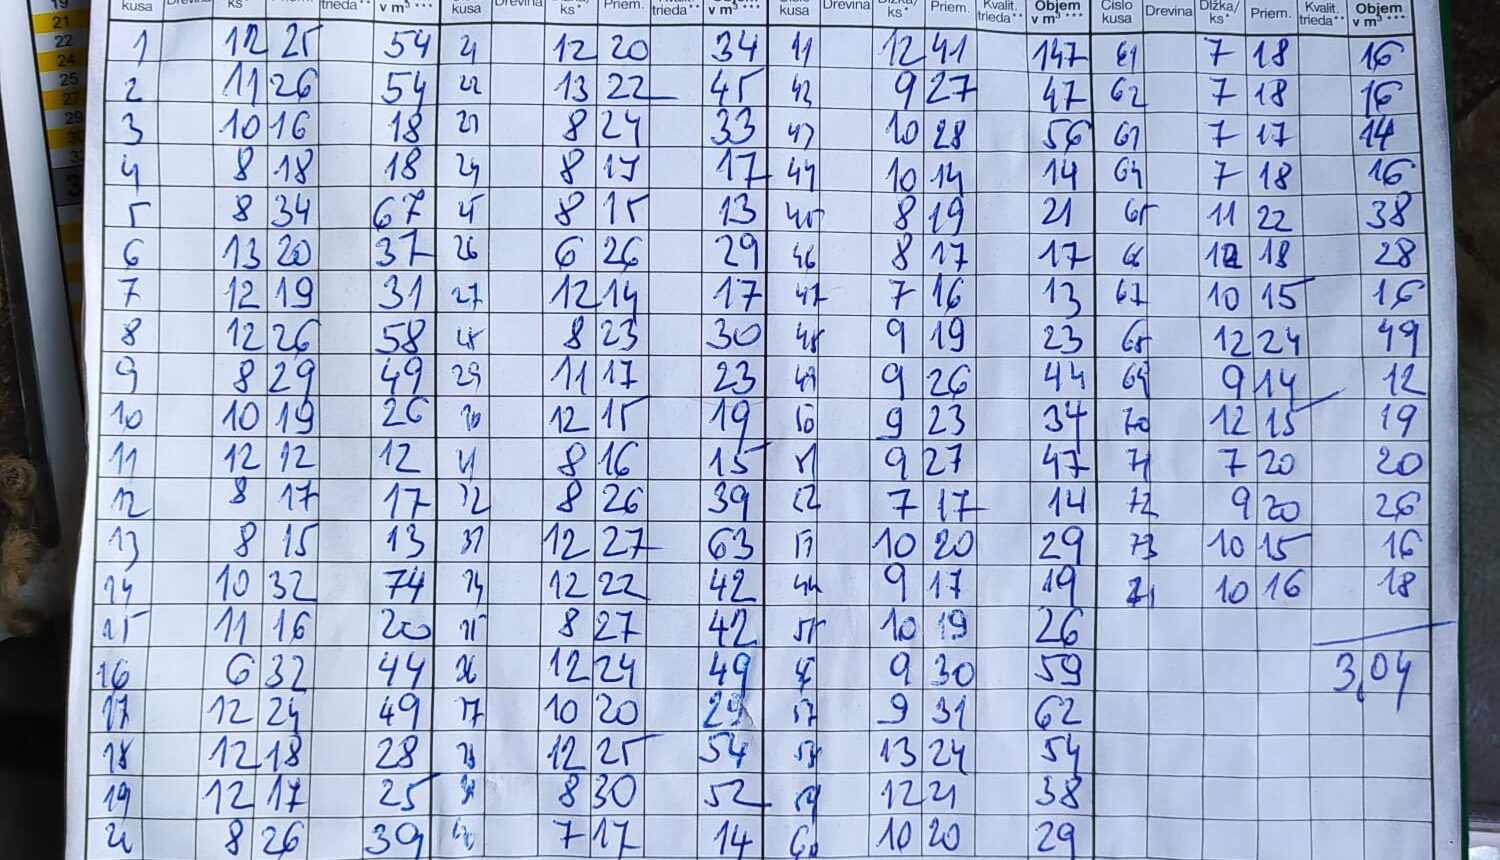 19
21
22
24
25
27
29
30
32
3
kusa Drevina ks* Priem. trieda** v m³ *** kusa Drevina ks* Priem. Kvalit. trieda** Objem v m³ *** Číslo kusa Drevina Dĺžka/ ks* Priem. Kvalit. trieda** Objem v m³ *** Číslo kusa Drevina Dĺžka/ ks* Priem. Kvalit. trieda** Objem v m³ ***
1 12 25 54 21 12 20 34 41 12 41 147 61 7 18 16
2 11 26 54 22 13 22 45 42 9 27 47 62 7 18 16
3 10 16 18 23 8 24 33 43 10 28 56 63 7 17 14
4 8 18 18 24 8 17 17 44 10 14 14 64 7 18 16
5 8 34 67 25 8 15 13 45 8 19 21 65 11 22 38
6 13 20 37 26 6 26 29 46 8 17 17 66 12 18 28
7 12 19 31 27 12 14 17 47 7 16 13 67 10 15 16
8 12 26 58 28 8 23 30 48 9 19 23 68 12 24 49
9 8 29 49 29 11 17 23 49 9 26 44 69 9 14 12
10 10 19 26 30 12 15 19 50 9 23 34 70 12 15 19
11 12 12 12 31 8 16 15 51 9 27 47 71 7 20 20
12 8 17 17 32 8 26 39 52 7 17 14 72 9 20 26
13 8 15 13 33 12 27 63 53 10 20 29 73 10 15 16
14 10 32 74 34 12 22 42 54 9 17 19 74 10 16 18
15 11 16 20 35 8 27 42 55 10 19 26
16 6 32 44 36 12 24 49 56 9 30 59 3,04
17 12 24 49 37 10 20 29 57 9 31 62
18 12 18 28 38 12 25 54 58 13 24 54
19 12 17 25 39 8 30 52 59 12 21 38
20 8 26 39 40 7 17 14 60 10 20 29